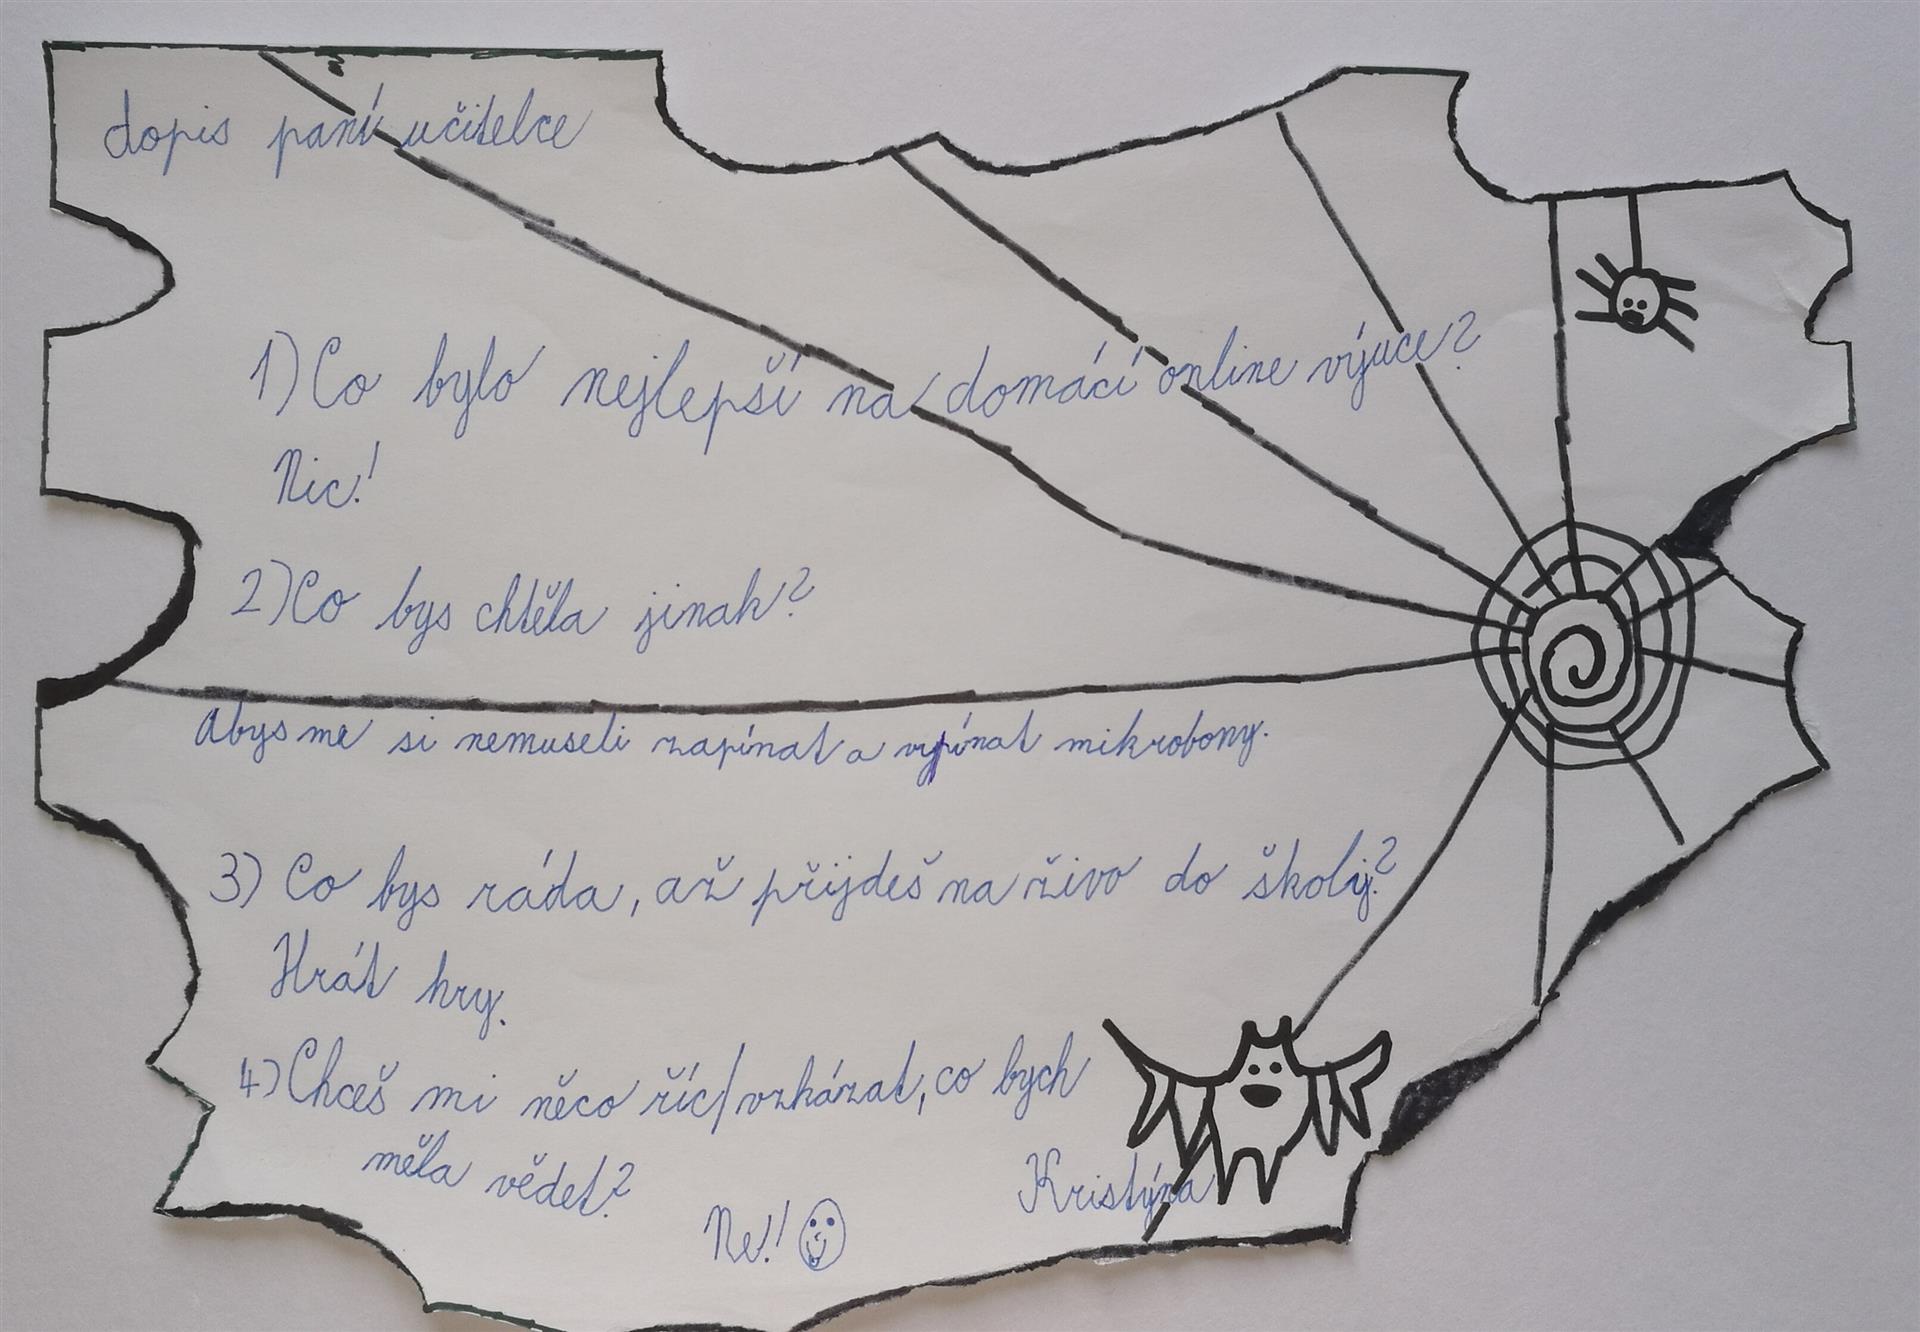 dopis paní učitelce
1) Co bylo nejlepší na domácí online výuce?
Nic!
2) Co bys chtěla jinak?
Abysme si nemuseli zapínat a vypínat mikrobony.
3) Co bys ráda, až přijdeš na živo do školy?
Hrát hry.
4) Chceš mi něco říc/vzkázat, co bych
měla vědet?
Ne!!
Kristýna